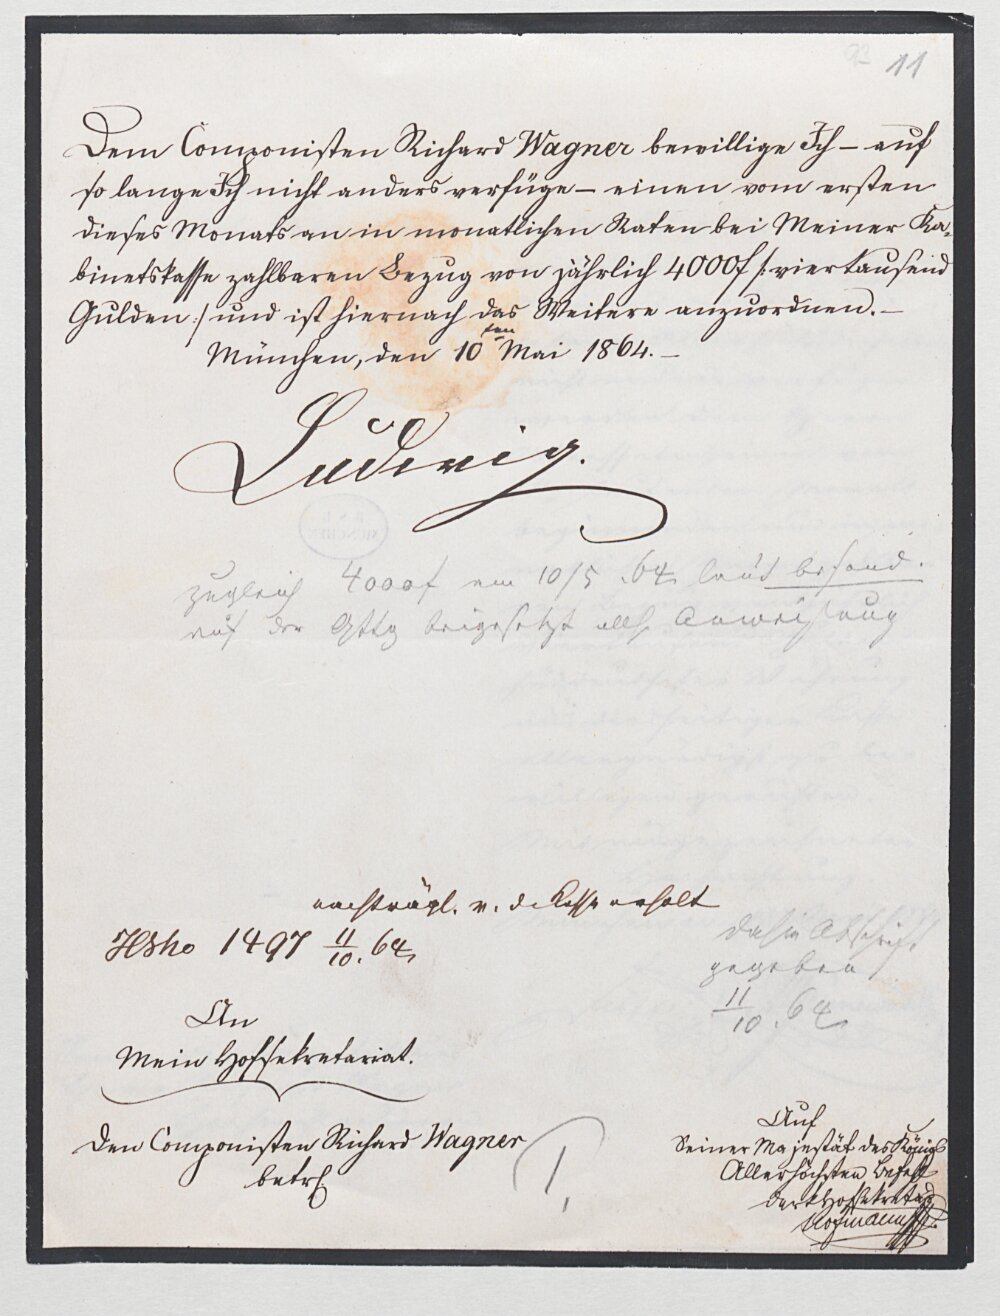 11
Dem Componisten Richard Wagner bewillige Ich – auf
so lange Ich nicht anders verfüge – einen vom ersten
dieses Monats an in monatlichen Raten bei Meiner Ka-
binetskasse zahlbaren Bezug von jährlich 4000f /: viertausend
Gulden :/ und ist hiernach das Weitere anzuordnen. –
München, den 10ten Mai 1864. –
Ludwig.
zugleich 4000f am 10/5 .64 laut besond.
auf der beigesetzt Anweisung
nachträgl. v. d. Kasse erholt
1497 11/10. 64
dahin Abschrift
gegeben
11/10. 64
An
Mein Hofsekretariat.
Den Componisten Richard Wagner
betr.
Auf
Seiner Majestät des Königs
Allerhöchsten Befehl
der k. Hofsekretär
Hofmann
1.